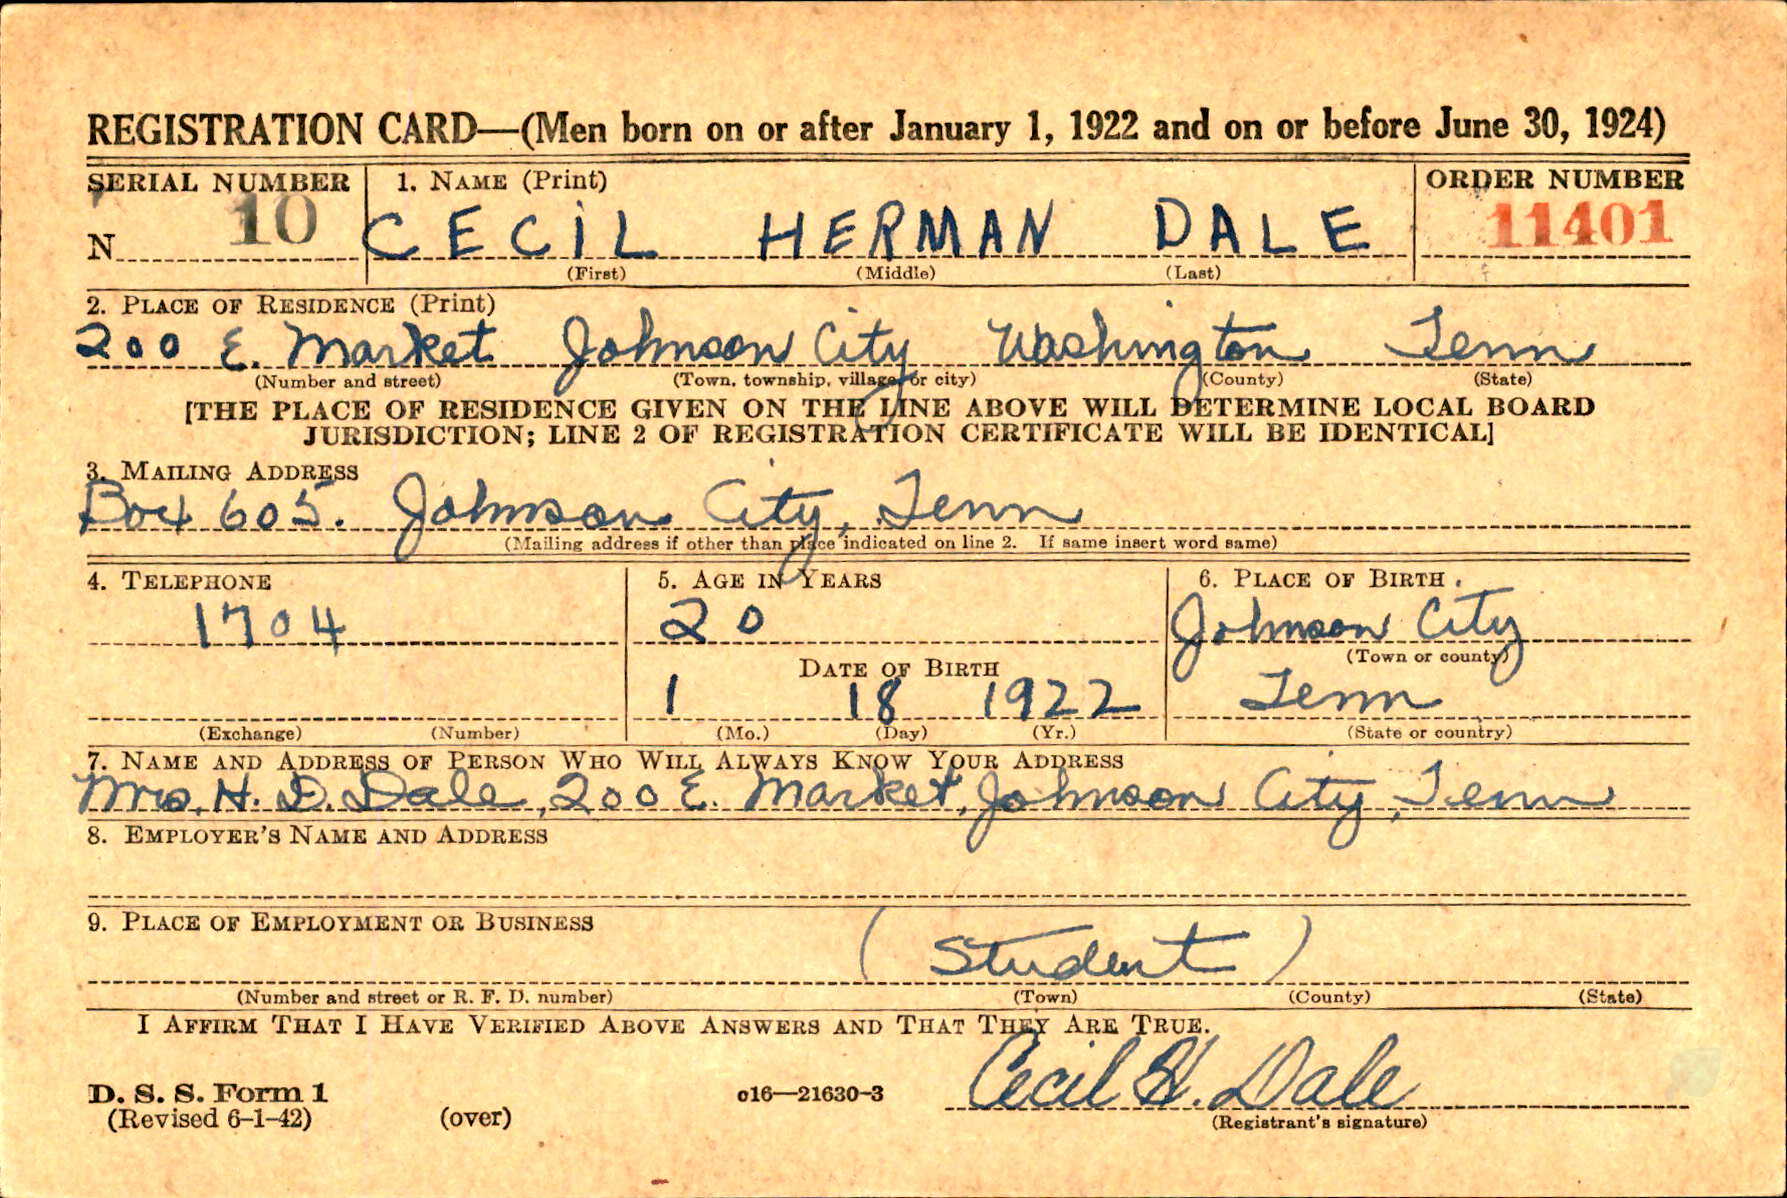 REGISTRATION CARD—(Men born on or after January 1, 1922 and on or before June 30, 1924)
SERIAL NUMBER 1. NAME (Print) ORDER NUMBER
N 10 CECIL HERMAN DALE 11401
(First) (Middle) (Last)
2. PLACE OF RESIDENCE (Print)
200 E. Market Johnson City Washington Tenn
(Number and street) (Town, township, village, or city) (County) (State)
[THE PLACE OF RESIDENCE GIVEN ON THE LINE ABOVE WILL DETERMINE LOCAL BOARD
JURISDICTION; LINE 2 OF REGISTRATION CERTIFICATE WILL BE IDENTICAL]
3. MAILING ADDRESS
Box 605. Johnson City, Tenn
(Mailing address if other than place indicated on line 2. If same insert word same)
4. TELEPHONE 5. AGE IN YEARS 6. PLACE OF BIRTH
1704 20 Johnson City
(Town or county)
DATE OF BIRTH
1 18 1922 Tenn
(Exchange) (Number) (Mo.) (Day) (Yr.) (State or country)
7. NAME AND ADDRESS OF PERSON WHO WILL ALWAYS KNOW YOUR ADDRESS
Mrs. H. D. Dale, 200 E. Market, Johnson City, Tenn
8. EMPLOYER'S NAME AND ADDRESS
9. PLACE OF EMPLOYMENT OR BUSINESS
(Student)
(Number and street or R. F. D. number) (Town) (County) (State)
I AFFIRM THAT I HAVE VERIFIED ABOVE ANSWERS AND THAT THEY ARE TRUE.
Cecil H. Dale
D. S. S. Form 1 c16—21630-3
(Revised 6-1-42) (over) (Registrant's signature)